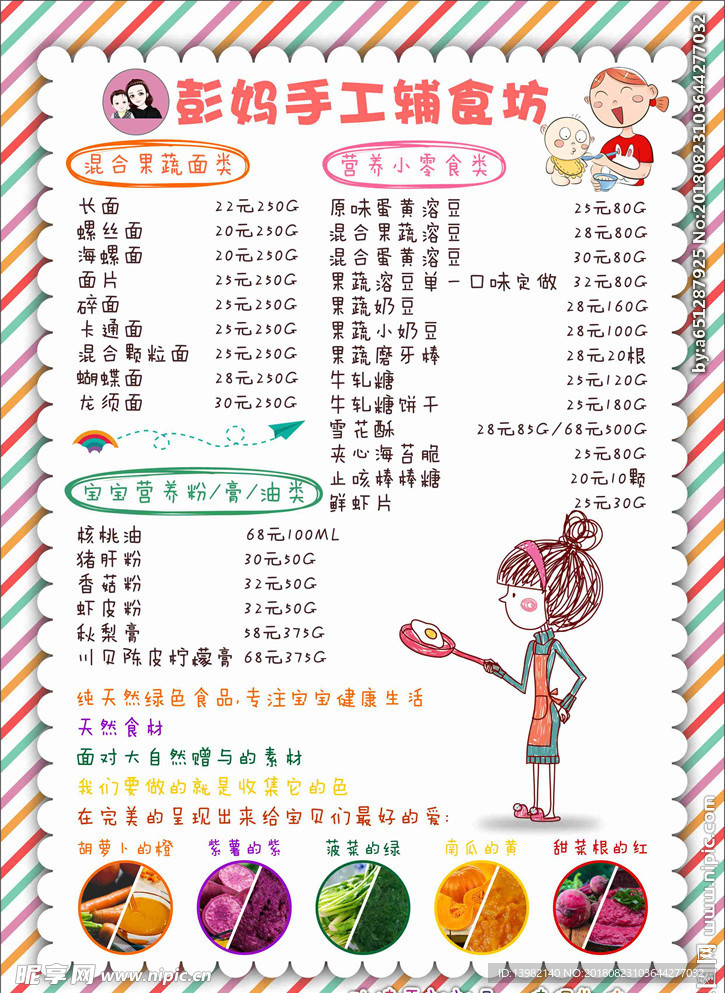 彭妈手工辅食坊
混合果蔬面类
长面 22元250G
螺丝面 20元250G
海螺面 20元250G
面片 25元250G
碎面 25元250G
卡通面 25元250G
混合颗粒面 25元250G
蝴蝶面 28元250G
龙须面 30元250G
营养小零食类
原味蛋黄溶豆 25元80G
混合果蔬溶豆 28元80G
混合蛋黄溶豆 30元80G
果蔬溶豆单一口味定做 32元80G
果蔬奶豆 28元160G
果蔬小奶豆 28元100G
果蔬磨牙棒 28元20根
牛轧糖 25元120G
牛轧糖饼干 25元180G
雪花酥 28元85G/68元500G
夹心海苔脆 25元80G
止咳棒棒糖 20元10颗
鲜虾片 25元30G
宝宝营养粉/膏/油类
核桃油 68元100ML
猪肝粉 30元50G
香菇粉 32元50G
虾皮粉 32元50G
秋梨膏 58元375G
川贝陈皮柠檬膏 68元375G
纯天然绿色食品,专注宝宝健康生活
天然食材
面对大自然赠与的素材
我们要做的就是收集它的色
在完美的呈现出来给宝贝们最好的爱:
胡萝卜的橙
紫薯的紫
菠菜的绿
南瓜的黄
甜菜根的红
by:a651287925 No:20180823103644277032
昵享网 www.nipic.cn
昵图网 www.nipic.com
ID:13982140 NO:20180823103644277032